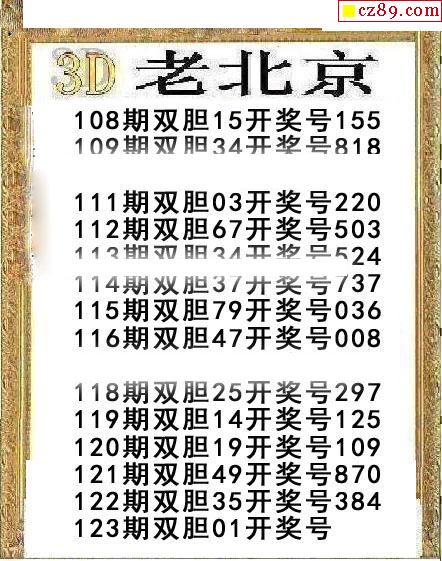 cz89.com
3D 老北京
108期双胆15开奖号155
109期双胆34开奖号818
111期双胆03开奖号220
112期双胆67开奖号503
113期双胆34开奖号524
114期双胆37开奖号737
115期双胆79开奖号036
116期双胆47开奖号008
118期双胆25开奖号297
119期双胆14开奖号125
120期双胆19开奖号109
121期双胆49开奖号870
122期双胆35开奖号384
123期双胆01开奖号